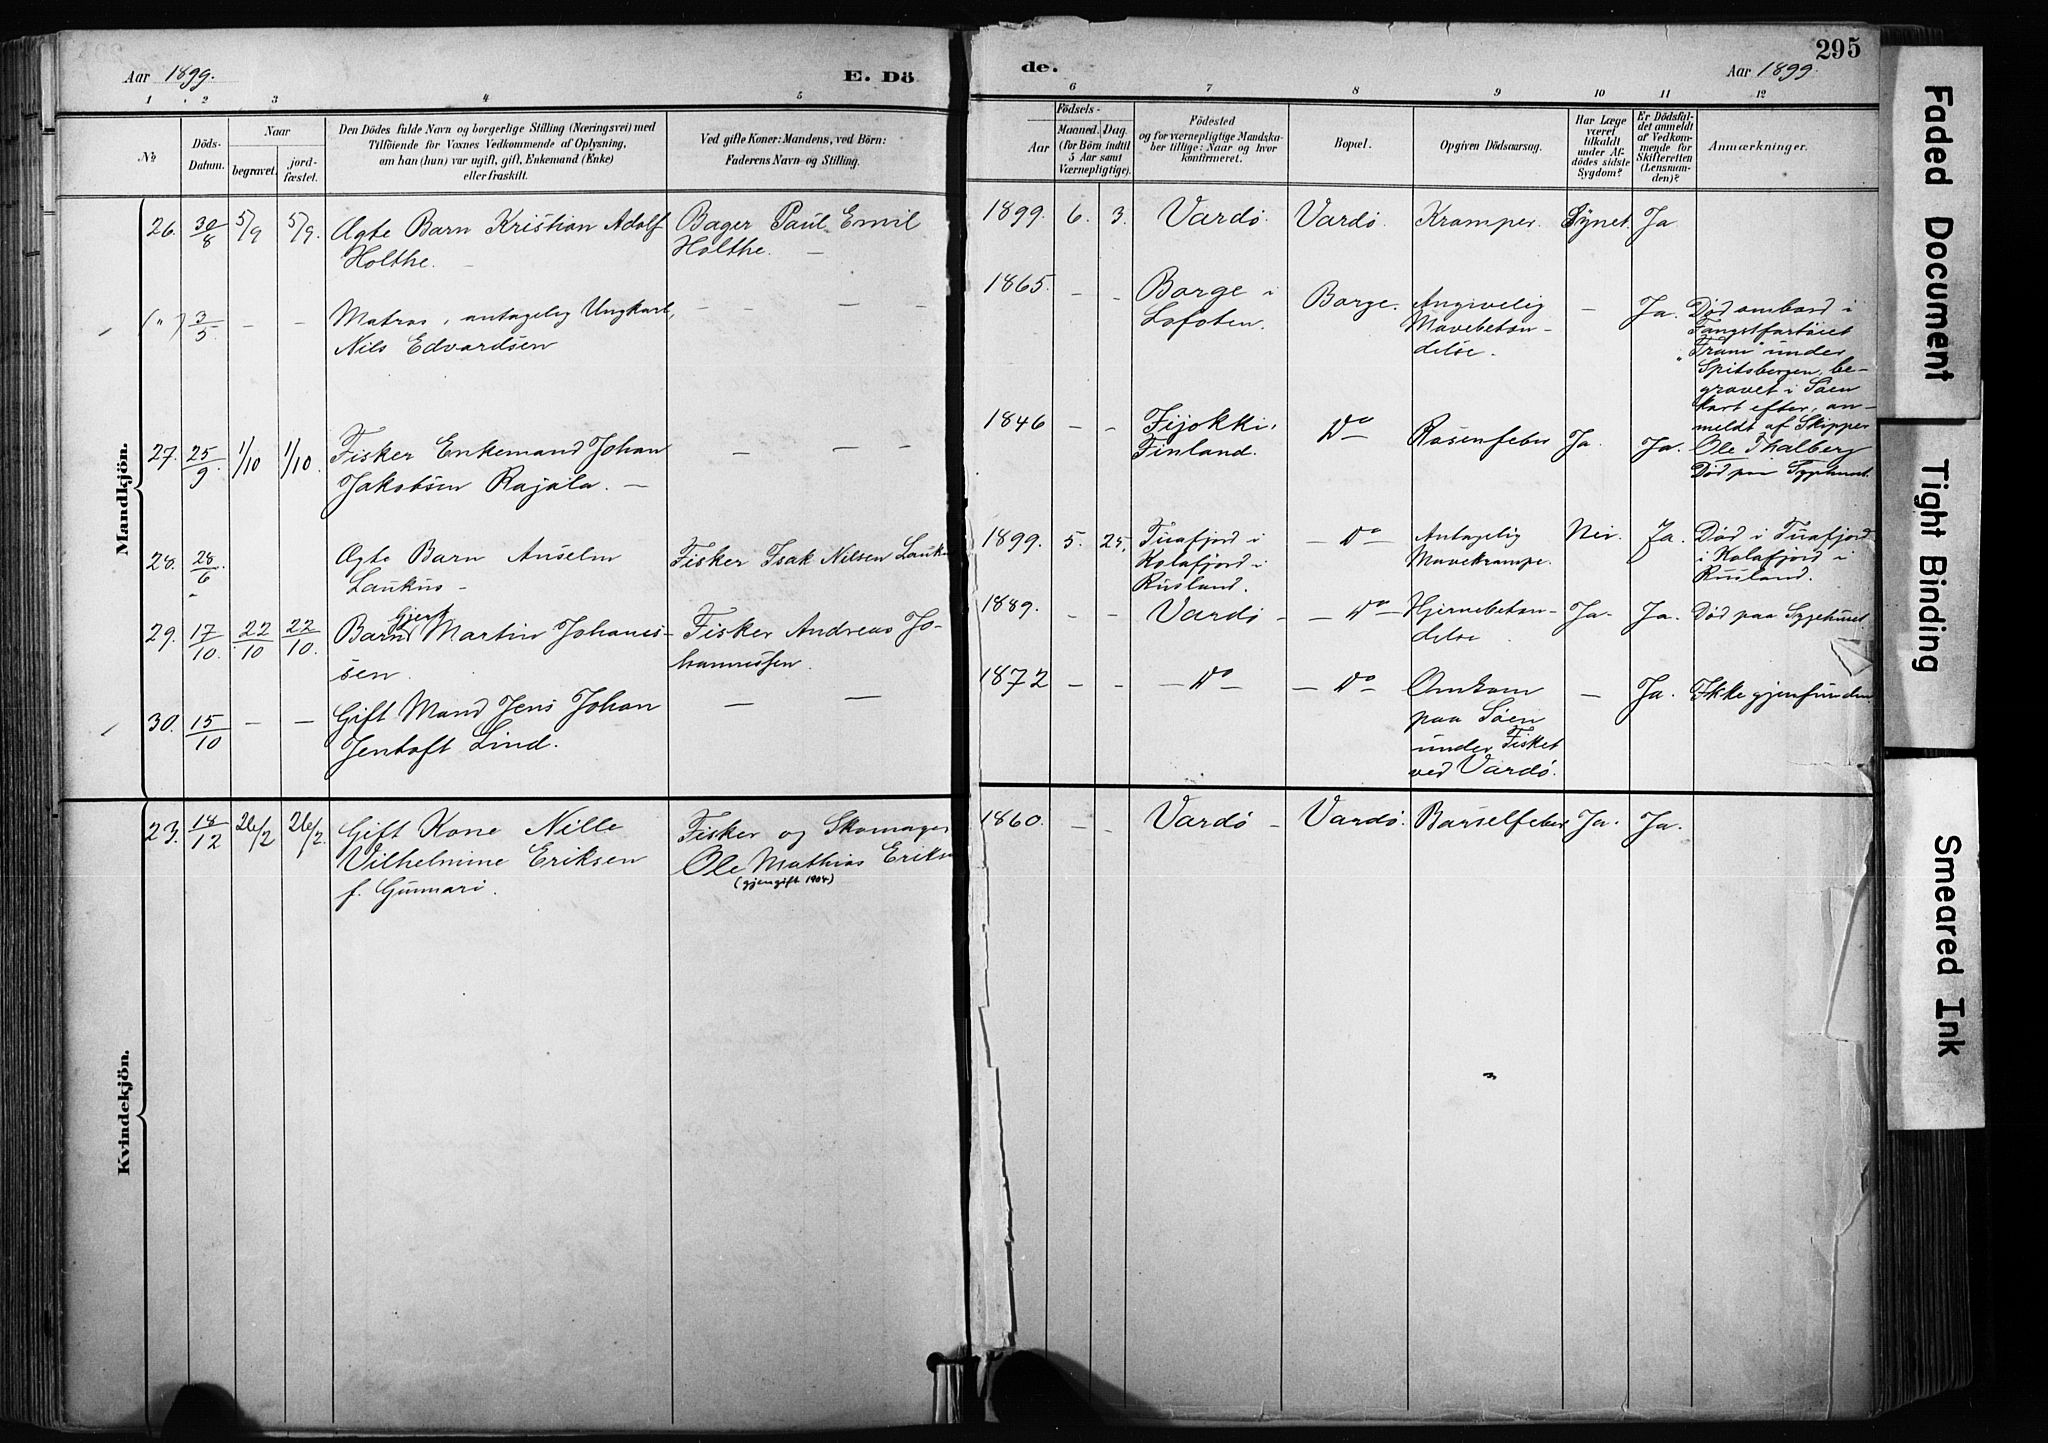 Aar 1899.
E. Dö
de.
Aar 1899.
295
1 2 3 4 5 6 7 8 9 10 11 12
№
Döds-Datum.
Naar
begravet.
jord-fæstet.
Den Dödes fulde Navn og borgerlige Stilling (Næringsvei) med
Tilföiende for Voxnes Vedkommende af Oplysning,
om han (hun) var ugift, gift, Enkemand (Enke)
eller fraskilt.
Ved gifte Koner: Mandens, ved Börn:
Faderens Navn og Stilling.
Födsels-
Aar
Maaned. Dag.
(for Börn indtil
5 Aar samt
Værnepligtige).
Födested
og for værnepligtige Mandska-
ber tillige: Naar og hvor
konfirmeret.
Bopæl.
Opgiven Dödsaarsag.
Har Læge
været
tilkaldt
under Af-
dödes sidste
Sygdom?
Er Dödsfal-
det anmeldt
af Vedkom-
mende for
Skifteretten
(Lensman-
den)?
Anmærkninger.
Mandkjön.
26. 30/8 5/9 5/9. Ægte Barn Kristian Adolf
Holthe. –
Bager Paul Emil
Holthe. –
1899. 6. 3. Vardö. Vardö. Kramper. Synet. Ja
(") 3/5 – – Matros, antagelig Ungkarl,
Nils Edvardsen
– – – –
1865. – – Borge i
Lofoten.
Borge. Angivelig
Mavebetæn-
delse.
– Ja. Död ombord i
Fangstfartöiet
"Fram" under
Spitsbergen, be-
gravet i Söen
kort efter, an-
meldt af Skipper
Ole Thalberg
27. 25/9. 1/10 1/10. Fisker Enkemand Johan
Jakobsen Rajala. –
– – –
1846 – – Fijokki,
Finland.
Do Rosenfeber Ja. Ja. Död paa Sygehuset.
28. 28/6 Ægte Barn Anselm
Laukus –
Fisker Isak Nilsen
1899. 5. 25. i
Kolafjord i
Rusland.
– Do – Antagelig
Mavekrampe.
Nei. Ja. Död i
i Kolafjord i
Rusland.
29. 17/10. 22/10 22/10. Barn Gjert Martin Johannes-
sen.
Fisker Andreas Jo-
hannessen.
1889. – – Vardö – – Do Hjernebetæn-
delse.
Ja. Ja. Död paa Sygehuset.
30. 15/10 – – Gift Mand Jens Johan
Jentoft Lind.
– –
1872 – – – Do – – Do – Omkom
paa Söen
under Fisket
ved Vardö.
– Ja. Ikke gjenfunden.
Kvindekjön.
23. 18/12 26/2 26/2. Gift Kone Nille
Vilhelmine Eriksen
f. Gunnari.
Fisker og Skomager
Ole Mathias
(gjengift 1904)
1860. – – Vardö – Vardö. Barselfeber Ja. Ja.
Faded Document
Tight Binding
Smeared Ink